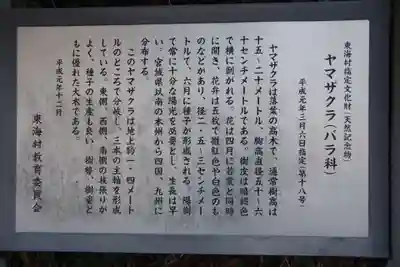 東海村指定文化財（天然記念物）
ヤマザクラ（バラ科）
平成元年三月六日指定（第十八号）
ヤマザクラは落葉の高木で、通常樹高は
十五～二十メートル、胸高直径五十～六
十センチメートルである。樹皮は暗紫色
で横に剥がれる。花は四月に若葉と同時
に開き、花弁は五枚で微紅色や白色のも
のなどがあり、径二・五～三センチメー
トルで、六月に種子が形成される。陽樹
で常に十分な陽光を必要とし、生長は早
い。宮城県以南の本州から四国、九州に
分布する。
このヤマザクラは地上約一・四メート
ルのところで分岐し、三本の主幹を形成
している。東側、西側、南側の枝張りが
よく、種子の生産も良い。樹勢、樹姿と
もに優れた大木である。
平成元年十二月
東海村教育委員会